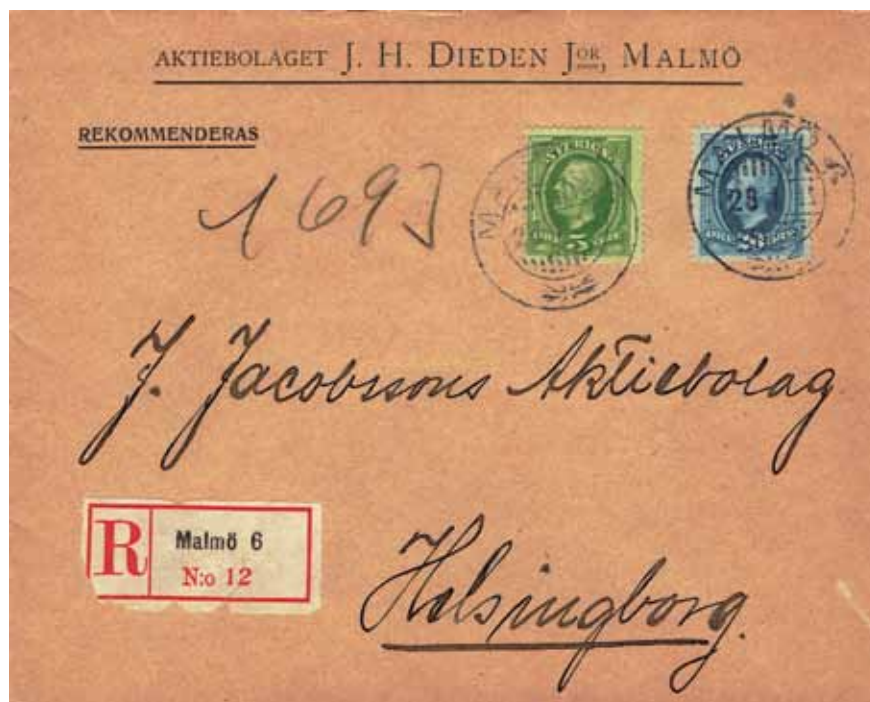 AKTIEBOLAGET J. H. DIEDEN JOR, MALMÖ
REKOMMENDERAS
1693
SVERIGE
5
MALMÖ 6
28
20
J. Jacobssons Aktiebolag
R
Malmö 6
N:o 12
Helsingborg.